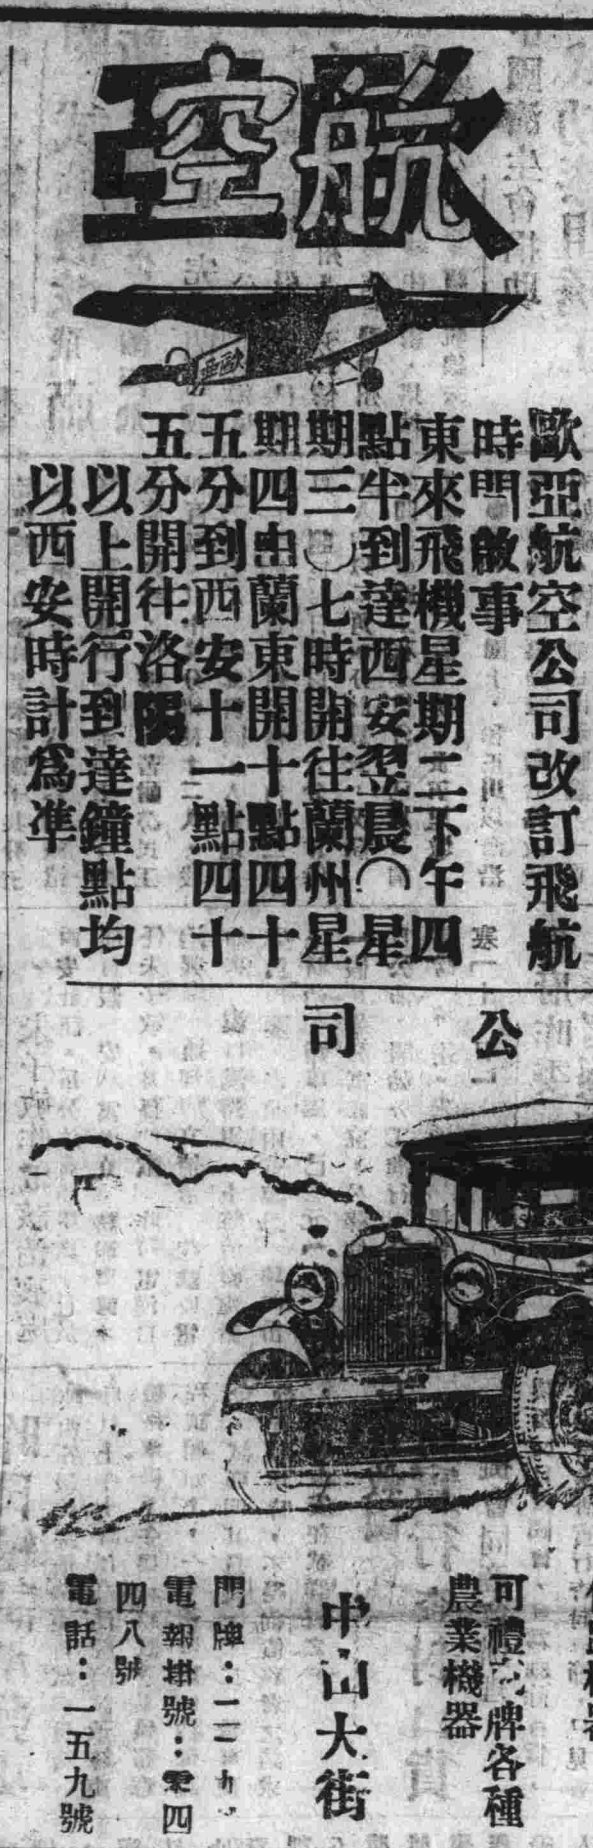 航空
歐亞
歐亞航空公司改訂飛航
時間啟事
東來飛機星期二下午四
點半到達西安翌晨〇星
期三〇七時開往蘭州星
期四由蘭東開十點四十
五分到西安十一點四十
五分開往洛陽
以上開行到達鐘點均
以西安時計為準
公司
可禮 牌各種
農業機器
中山大街
門牌：
電報掛號：零四
四八號
電話：一五九號